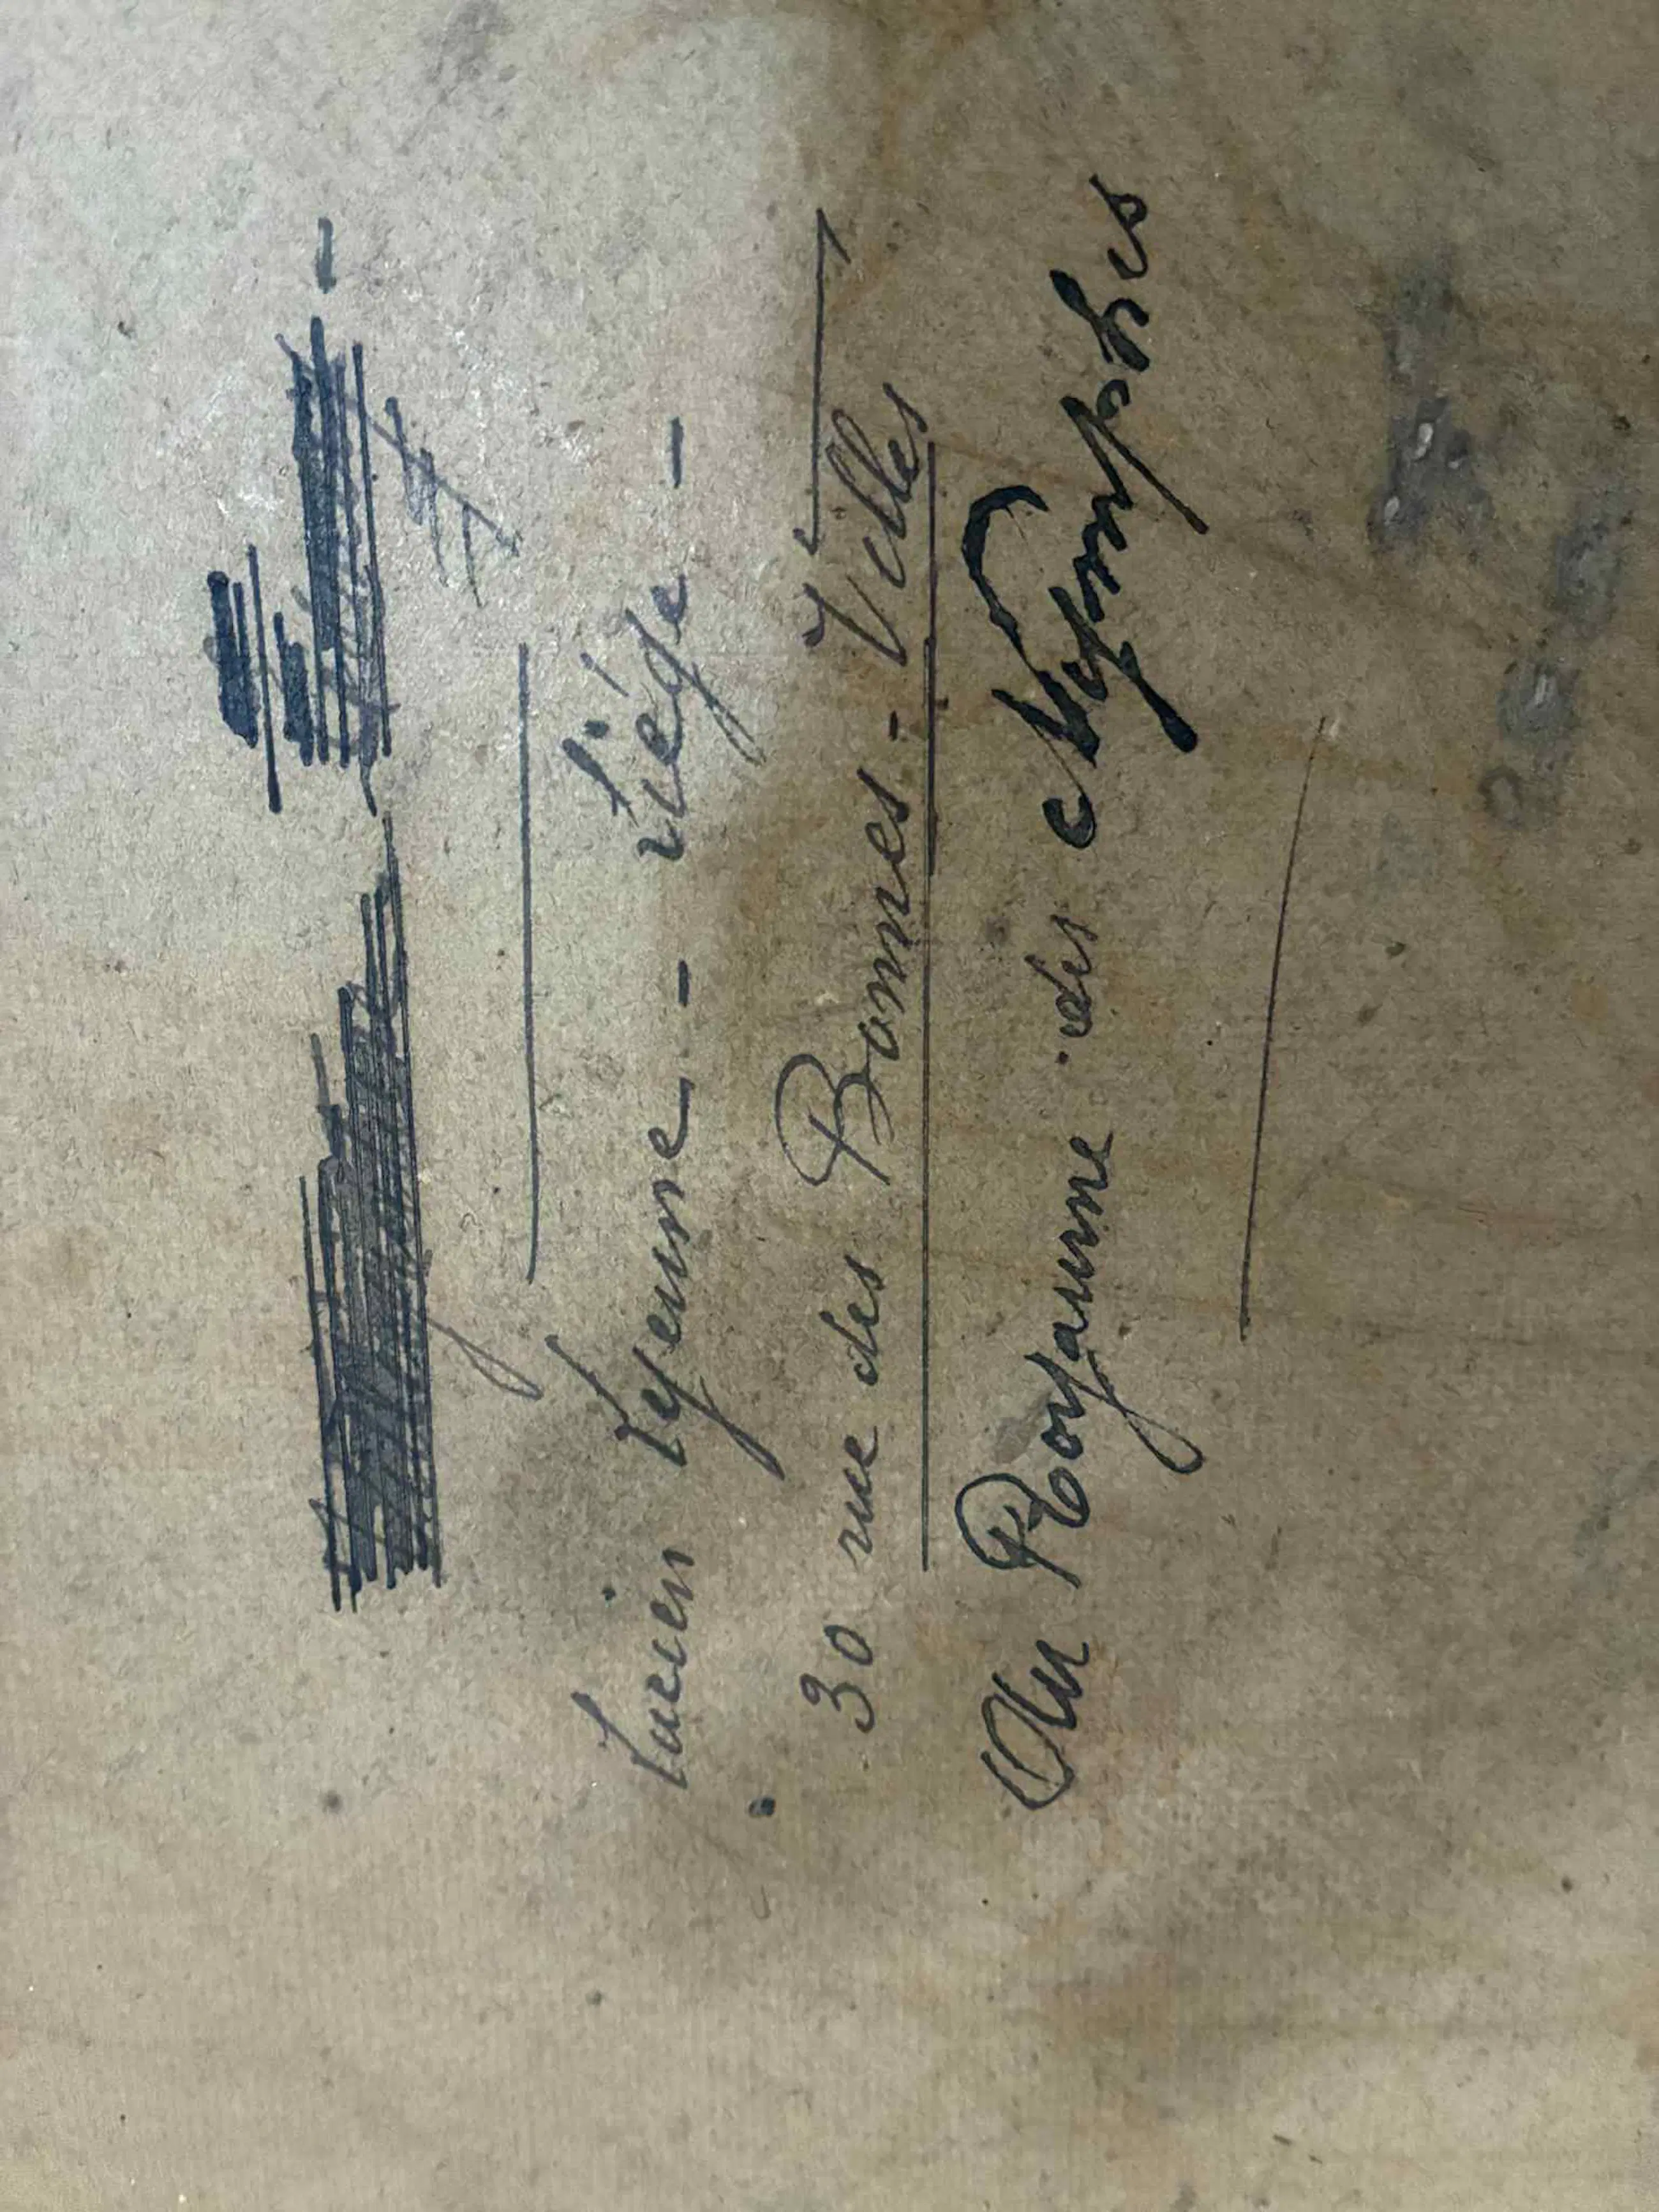 Lucien Lejeune - Liége -
30 rue des Bonnes-Villes
Au Royaume des Nymphes